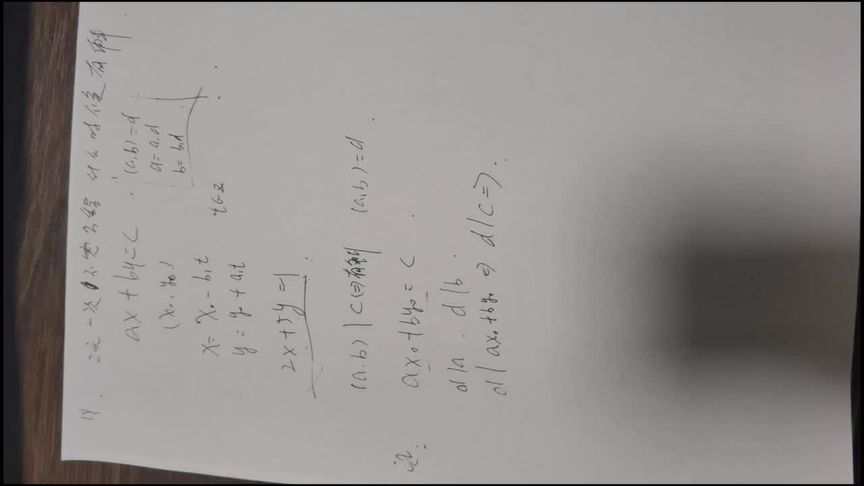 19. 二元一次不定方程 什么时候有解
ax + by = c . (a.b) = d
(x₀, y₀) a = a₁d
b = b₁d
x = x₀ - b₁t
y = y₀ + a₁t t∈Z
2x + 5y = 1
(a.b) | c ⇔ 有解 (a,b) = d .
证: ax₀ + by₀ = c .
d|a . d|b .
d | ax₀ + by₀ ⇒ d | c ⇒ .